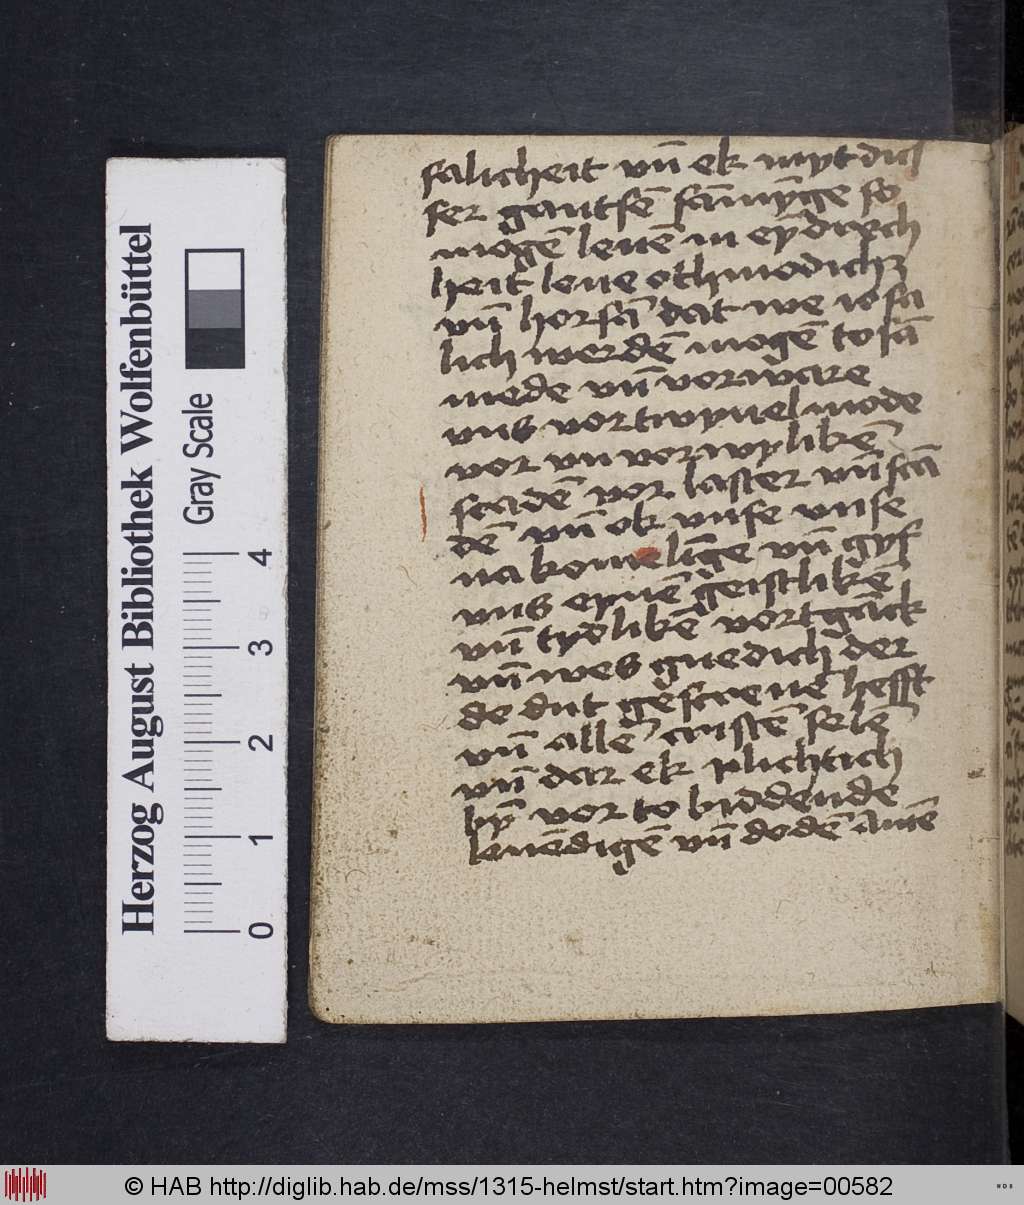 salicheit vn̄ ek myt diſ
ser gantsē sāmȳge so
mogē leuē in eȳdrech
heit leue othmodich3
vn̄ horsā dat we io sa
lich werdē mogē to sā
mede vn̄ vorware
vns vor twyuelmode
vor vnvorwylikē
scadē vor laster vn̄ scā
dē vn̄ ok vnse vnse
nakomelīge vn̄ gyf
vns eynē geistlikē
vn̄ tydlikē vortgāck
vn̄ wes gnedich der
de dut gescreuē hefft
vn̄ allē cristē selē
vn̄ dar ek plichtich
bȳ vor to biddende
leuēdigē vn̄ dodē Amē
Herzog August Bibliothek Wolfenbüttel
Gray Scale
0 1 2 3 4
© HAB http://diglib.hab.de/mss/1315-helmst/start.htm?image=00582